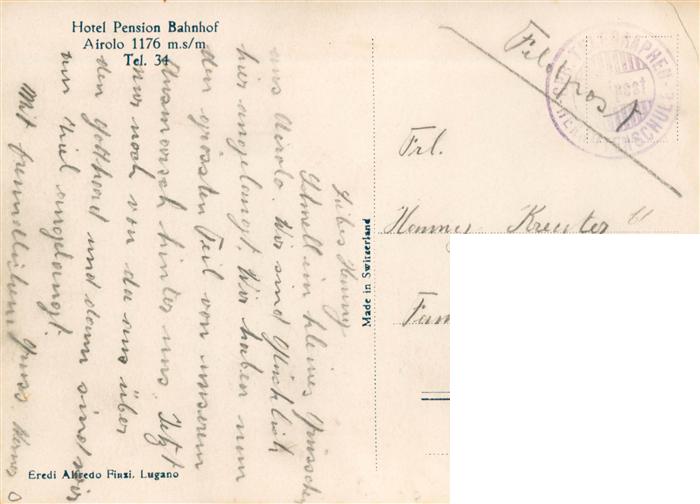 Hotel Pension Bahnhof
Airolo 1176 m.s/m
Tel. 34
Liebes Henny
Schnell ein kleines Grüsschen
aus Airolo. Wir sind glücklich
hier angelangt. Wir haben nun
den grössten Teil von unserem
Ausmarsch hinter uns. Jetzt
nur noch von da aus über
den Gotthard und dann sind wir
am Ziel angelangt.
Mit freundlichem Gruss
Eredi Alfredo Finzi, Lugano
Made in Switzerland
Feldpost
Frl.
Henny Kreuter